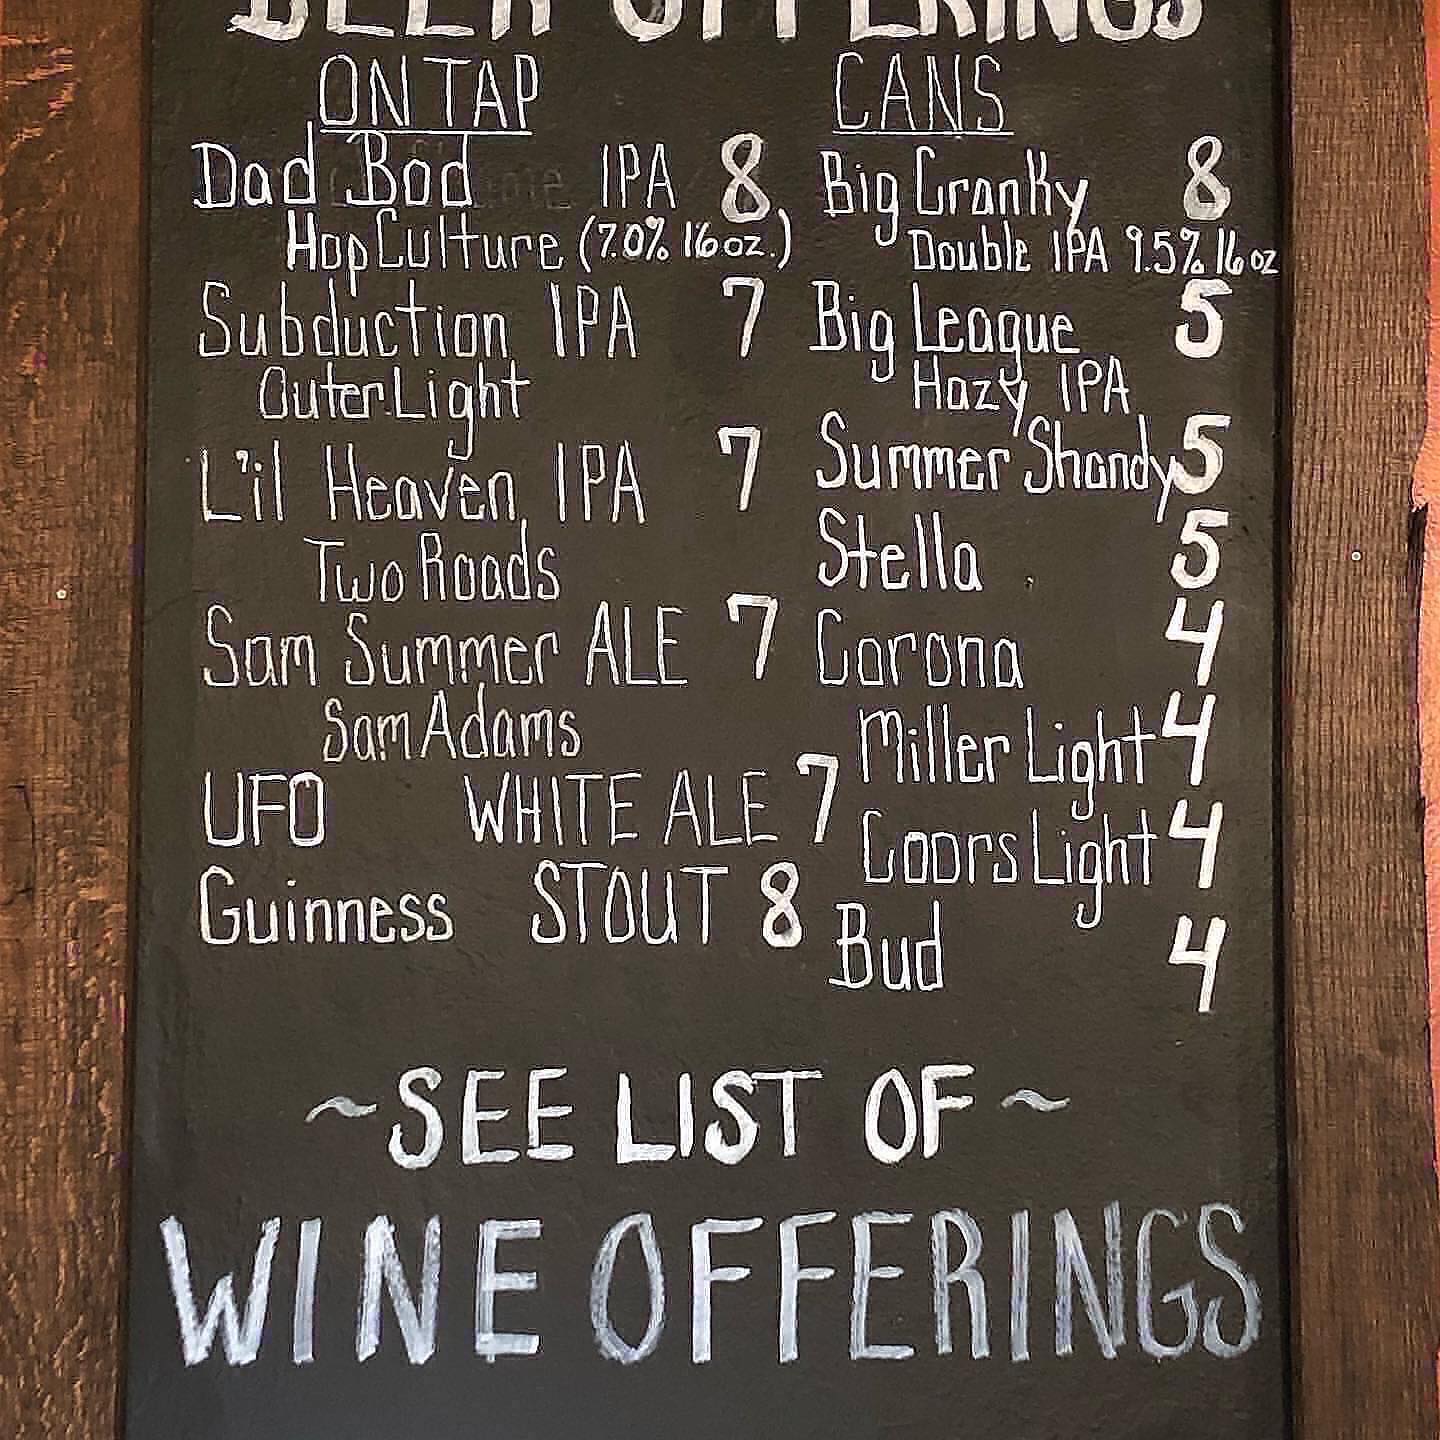 BEER OFFERINGS
ON TAP
Dad Bod IPA 8
Hop Culture (7.0% 16 oz.)
Subduction IPA 7
Outer Light
L'il Heaven IPA 7
Two Roads
Sam Summer ALE 7
Sam Adams
UFO WHITE ALE 7
Guinness STOUT 8
CANS
Big Cranky 8
Double IPA 9.5% 16 oz
Big League 5
Hazy IPA
Summer Shandy 5
Stella 5
Corona 4
Miller Light 4
Coors Light 4
Bud 4
~SEE LIST OF~
WINE OFFERINGS